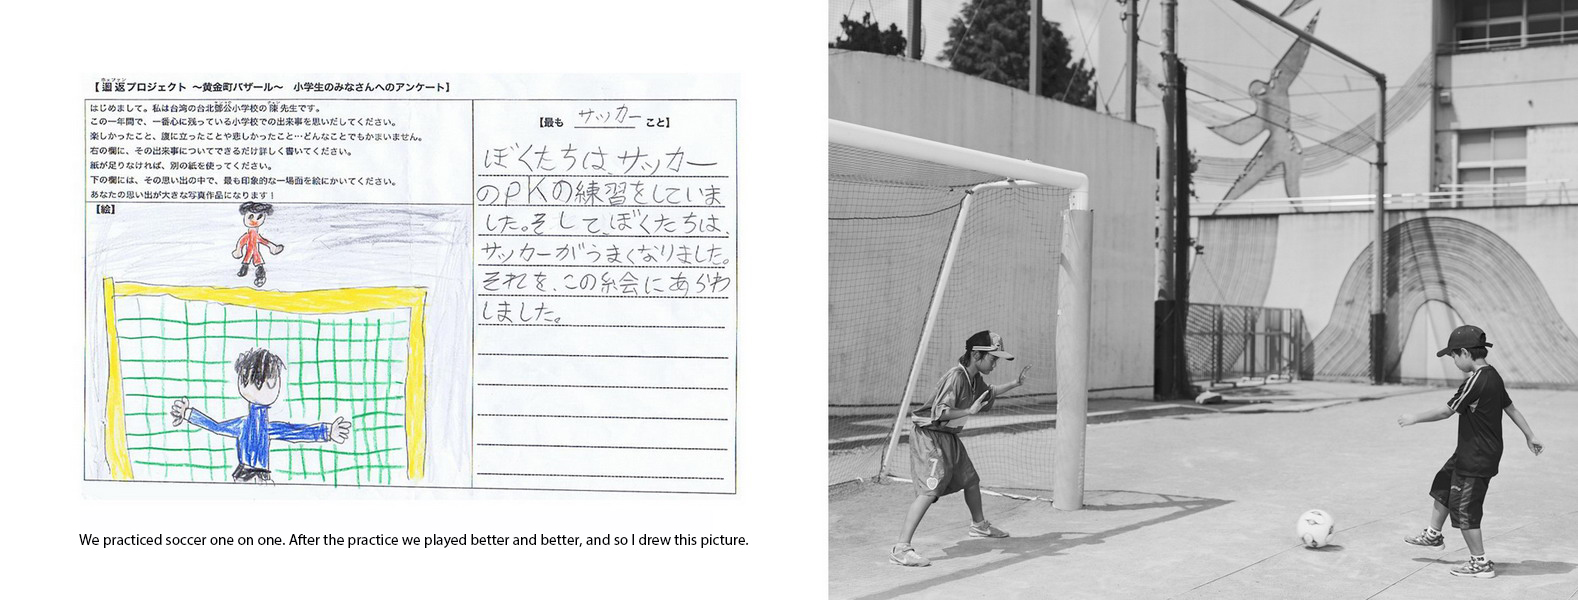 【迴返プロジェクト ～黄金町バザール～　小学生のみなさんへのアンケート】
はじめまして。私は台湾の台北鄧公小学校の陳先生です。
この一年間で、一番心に残っている小学校での出来事を思いだしてください。
楽しかったこと、腹に立ったことや悲しかったこと…どんなことでもかまいません。
右の欄に、その出来事についてできるだけ詳しく書いてください。
紙が足りなければ、別の紙を使ってください。
下の欄には、その思い出の中で、最も印象的な一場面を絵にかいてください。
あなたの思い出が大きな写真作品になります！
【絵】
【最も サッカー こと】
ぼくたちは、サッカー
のPKの練習をしていま
した。そして、ぼくたちは、
サッカーがうまくなりました。
それを、この絵にあらわ
しました。
We practiced soccer one on one. After the practice we played better and better, and so I drew this picture.
7